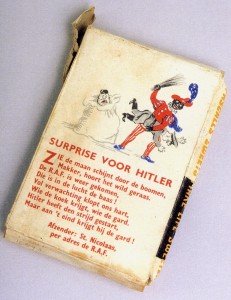 SURPRISE VOOR HITLER
Zie de maan schijnt door de boomen,
Makker, hoort het wild geraas.
De R.A.F. is weer gekomen
Die is in de lucht de baas!
Vol verwachting klopt ons hart,
Wie de koek krijgt, wie de gard.
Hitler heeft den strijd gestart,
Maar aan 't eind krijgt hij de gard!
Afzender: St. Nicolaas,
per adres de R.A.F.